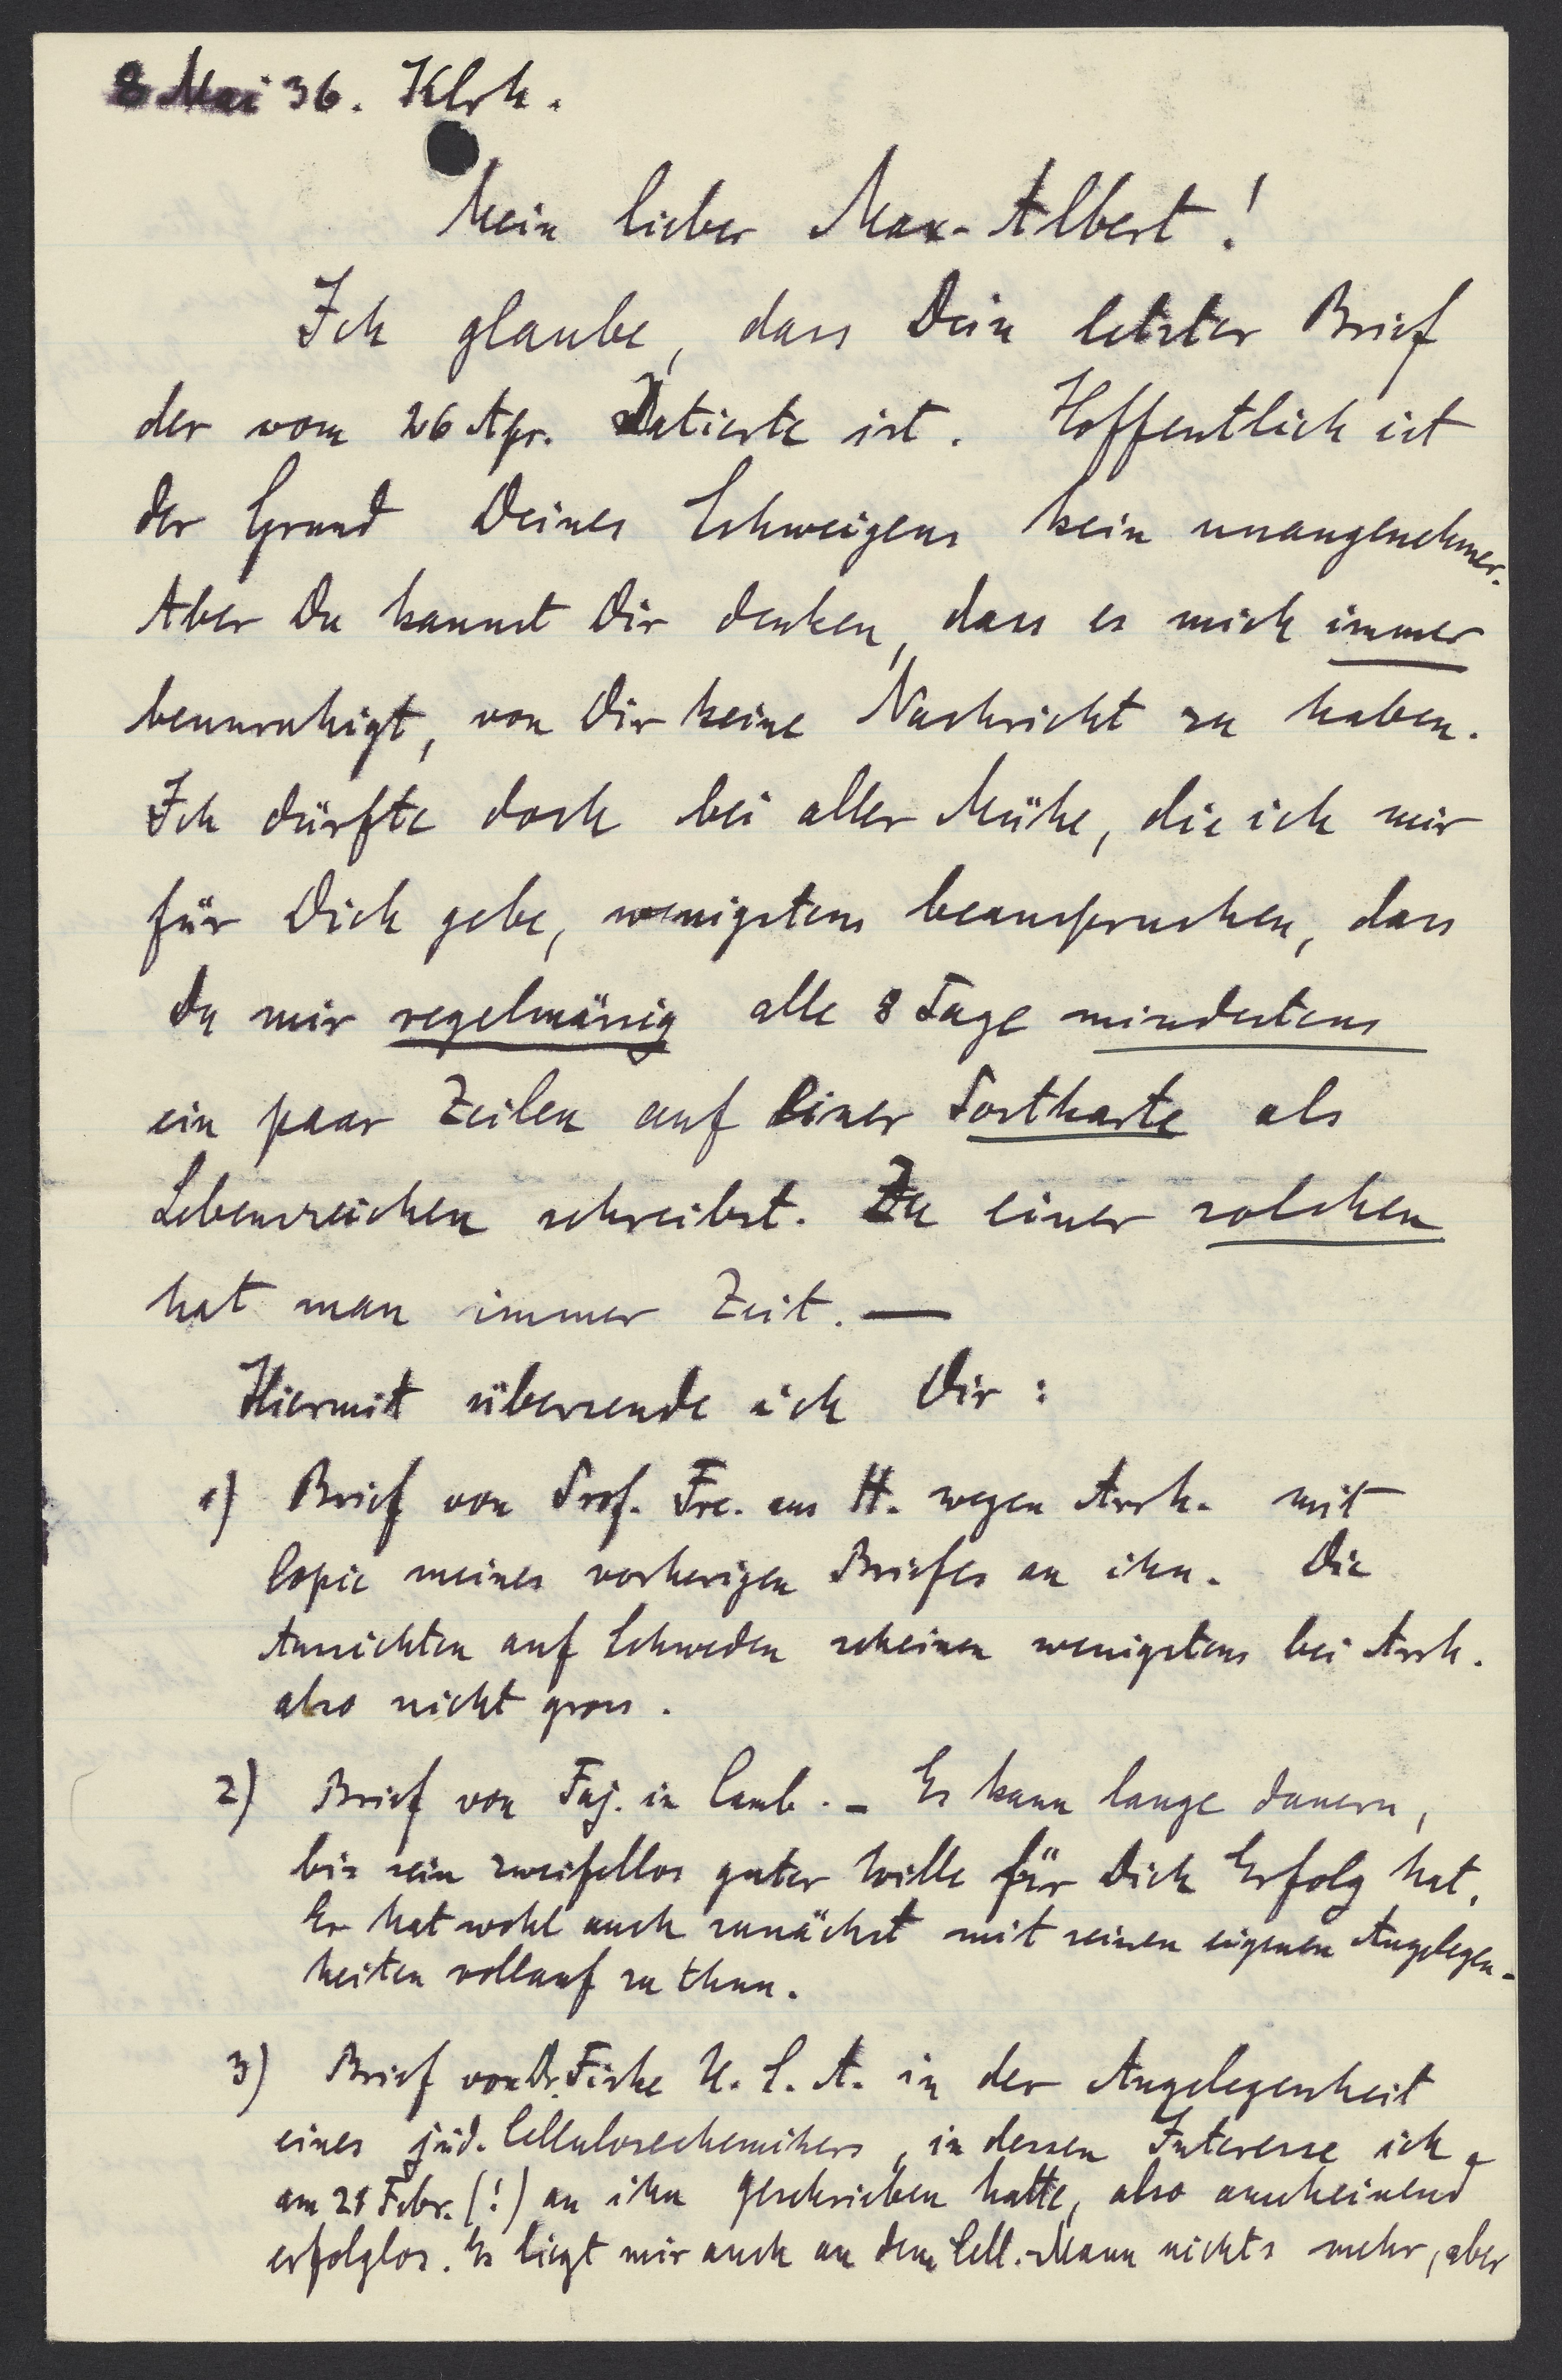 8 Mai 36. Klrh.
Mein lieber Max-Albert!
Ich glaube, dass Dein letzter Brief
der vom 26 Apr. Datierte ist. Hoffentlich ist
der Grund Deines Schweigens kein unangenehmer.
Aber Du kannst Dir denken, dass es mich immer
beunruhigt, von Dir keine Nachricht zu haben.
Ich dürfte doch bei aller Mühe, die ich mir
für Dich gebe, wenigstens beanspruchen, dass
Du mir regelmässig alle 8 Tage mindestens
ein paar Zeilen auf Einer Postkarte als
Lebenszeichen schreibst. Zu einer solchen
hat man immer Zeit. —
Hiermit übersende ich Dir:
1) Brief von Prof. Fre. aus H. wegen Arrh. mit
Copie meines vorherigen Briefes an ihn. Die
Aussichten auf Schweden scheinen wenigstens bei Arrh.
also nicht gross.
2) Brief von Faj. in Camb. - Es kann lange dauern,
bis sein zweifellos guter Wille für Dich Erfolg hat.
Er hat wohl auch zunächst mit seinen eigenen Angelegen-
heiten vollauf zu thun.
3) Brief von Dr. Fiske U. S. A. in der Angelegenheit
eines jüd. Cellulosechemikers, in dessen Interesse ich
am 21 Febr. (!) an ihn geschrieben hatte, also anscheinend
erfolglos. Es liegt mir auch an dem Cell.-Mann nichts mehr, aber